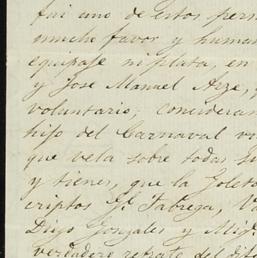 fui uno de estos per
mucho favor y human
equipaje ni plata, en
y Jose Manuel Arze,
voluntario; consideran
hijo del Carnaval vo
que vela sobre todas su
y tienes, que la Golet
criptos Fabrega, Va
Diego Gonzales y Mig
verdadero retrato del dif